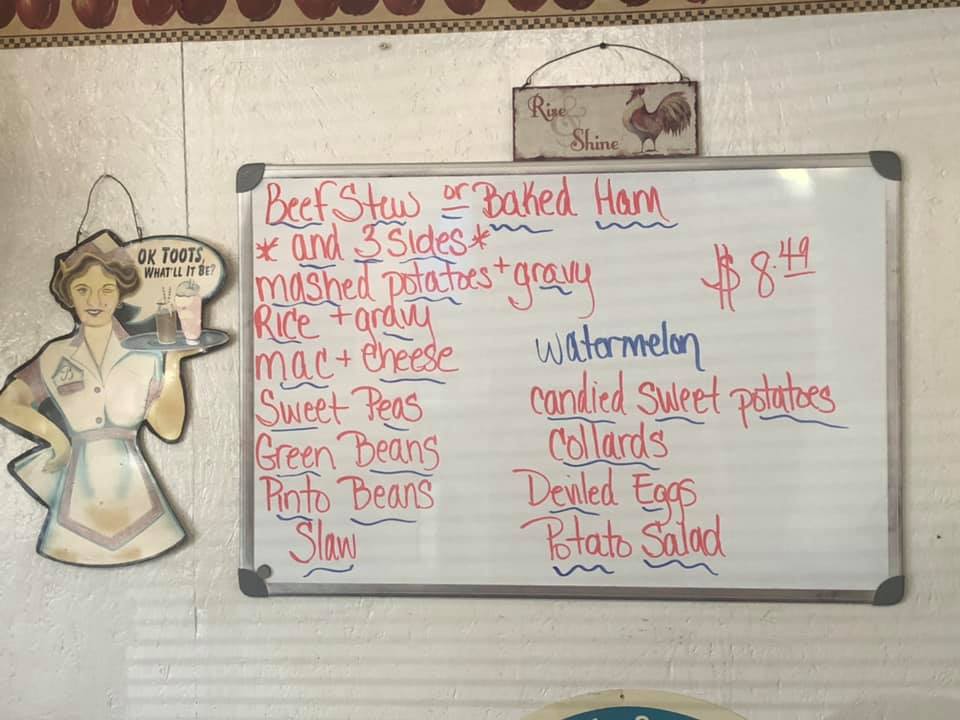 Rise & Shine
OK TOOTS,
WHAT'LL IT BE?
Beef Stew or Baked Ham
* and 3 sides *
mashed potatoes + gravy
$8.49
Rice + gravy
mac + cheese
watermelon
Sweet Peas
candied sweet potatoes
Green Beans
Collards
Pinto Beans
Deviled Eggs
Slaw
Potato Salad